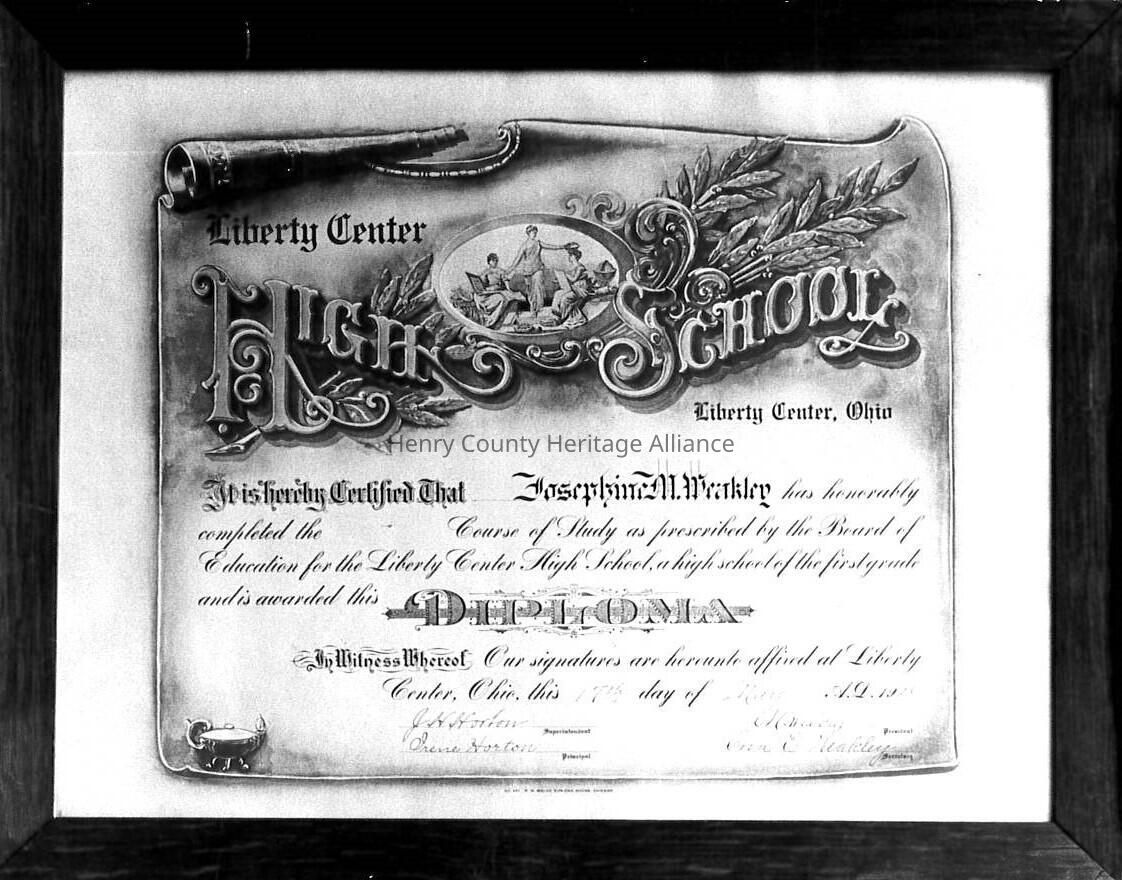 Liberty Center
High School
Liberty Center, Ohio
Henry County Heritage Alliance
It is hereby Certified That Josephine M. Weakley has honorably
completed the Course of Study as prescribed by the Board of
Education for the Liberty Center High School, a high school of the first grade
and is awarded this DIPLOMA
In Witness Whereof Our signatures are hereunto affixed at Liberty
Center, Ohio, this 17th day of A.D. 19
J H Horton
Superintendent President
Irene Horton E Weakley
Principal Secretary